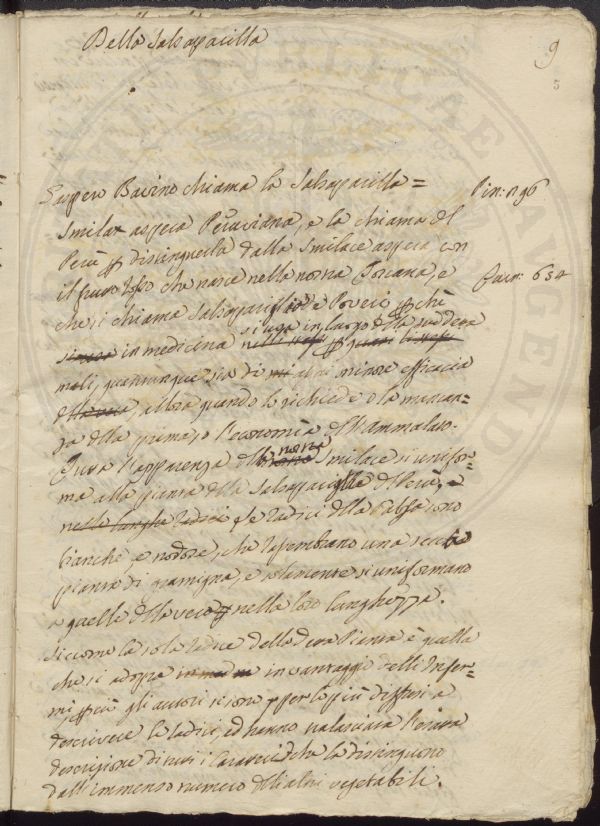 Della Salsapacilla
9
5
Gaspero Bavino chiama la Salsapacilla =
Pin: 296
Smilax aspera Peruviana, e la chiama del
Perù p distinguerla dalla Smilace aspera con
il frutto rosso che nasce nella nostra Toscana, e
che si chiama Salsapariglia de Poveri, p chè
in medicina si usa in luogo della suddetta
quantunque sia di assai minore efficacia
allora quando lo richiede o la mancan-
za della prima, o l'economia dell'Ammalato.
Tutta l'apparenza della nostra Smilace si unifor-
ma alla pianta della Salsapariglia del Perù, e
nelle lunghe radici le radici della falsa sono
bianche, e nodose, che rassembrano una
pianta di gramigna, e solamente si uniformano
a quelle della vera nella loro lunghezza.
Siccome la sola radice della vera Pianta è quella
che si adopra in vantaggio dell'Infer-
mi, più gli autori si sono per lo più diffusi a
descrivere la radice, ed hanno tralasciata l'esatta
descrizione di tutti i Caratteri che la distinguono
dall'immenso numero delli altri vegetabili.